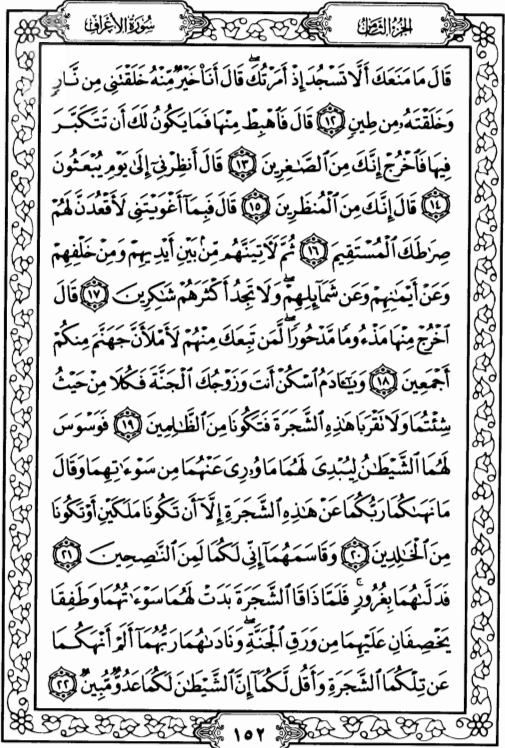 سُورَةُ الأَعْرَافِ
الجزء الثامن
قَالَ مَا مَنَعَكَ أَلَّا تَسْجُدَ إِذْ أَمَرْتُكَ ۖ قَالَ أَنَا۠ خَيْرٌ مِّنْهُ خَلَقْتَنِى مِن نَّارٍ
وَخَلَقْتَهُۥ مِن طِينٍ ١٢ قَالَ فَٱهْبِطْ مِنْهَا فَمَا يَكُونُ لَكَ أَن تَتَكَبَّرَ
فِيهَا فَٱخْرُجْ إِنَّكَ مِنَ ٱلصَّٰغِرِينَ ١٣ قَالَ أَنظِرْنِىٓ إِلَىٰ يَوْمِ يُبْعَثُونَ
١٤ قَالَ إِنَّكَ مِنَ ٱلْمُنظَرِينَ ١٥ قَالَ فَبِمَآ أَغْوَيْتَنِى لَأَقْعُدَنَّ لَهُمْ
صِرَٰطَكَ ٱلْمُسْتَقِيمَ ١٦ ثُمَّ لَءَاتِيَنَّهُم مِّنۢ بَيْنِ أَيْدِيهِمْ وَمِنْ خَلْفِهِمْ
وَعَنْ أَيْمَٰنِهِمْ وَعَن شَمَآئِلِهِمْ ۖ وَلَا تَجِدُ أَكْثَرَهُمْ شَٰكِرِينَ ١٧ قَالَ
ٱخْرُجْ مِنْهَا مَذْءُومًا مَّدْحُورًا ۖ لَّمَن تَبِعَكَ مِنْهُمْ لَأَمْلَأَنَّ جَهَنَّمَ مِنكُمْ
أَجْمَعِينَ ١٨ وَيَٰٓـَٔادَمُ ٱسْكُنْ أَنتَ وَزَوْجُكَ ٱلْجَنَّةَ فَكُلَا مِنْ حَيْثُ
شِئْتُمَا وَلَا تَقْرَبَا هَٰذِهِ ٱلشَّجَرَةَ فَتَكُونَا مِنَ ٱلظَّٰلِمِينَ ١٩ فَوَسْوَسَ
لَهُمَا ٱلشَّيْطَٰنُ لِيُبْدِىَ لَهُمَا مَا وُۥرِىَ عَنْهُمَا مِن سَوْءَٰتِهِمَا وَقَالَ
مَا نَهَىٰكُمَا رَبُّكُمَا عَنْ هَٰذِهِ ٱلشَّجَرَةِ إِلَّآ أَن تَكُونَا مَلَكَيْنِ أَوْ تَكُونَا
مِنَ ٱلْخَٰلِدِينَ ٢٠ وَقَاسَمَهُمَآ إِنِّى لَكُمَا لَمِنَ ٱلنَّٰصِحِينَ ٢١
فَدَلَّىٰهُمَا بِغُرُورٍ ۚ فَلَمَّا ذَاقَا ٱلشَّجَرَةَ بَدَتْ لَهُمَا سَوْءَٰتُهُمَا وَطَفِقَا
يَخْصِفَانِ عَلَيْهِمَا مِن وَرَقِ ٱلْجَنَّةِ ۖ وَنَادَىٰهُمَا رَبُّهُمَآ أَلَمْ أَنْهَكُمَا
عَن تِلْكُمَا ٱلشَّجَرَةِ وَأَقُل لَّكُمَآ إِنَّ ٱلشَّيْطَٰنَ لَكُمَا عَدُوٌّ مُّبِينٌ ٢٢
١٥٢